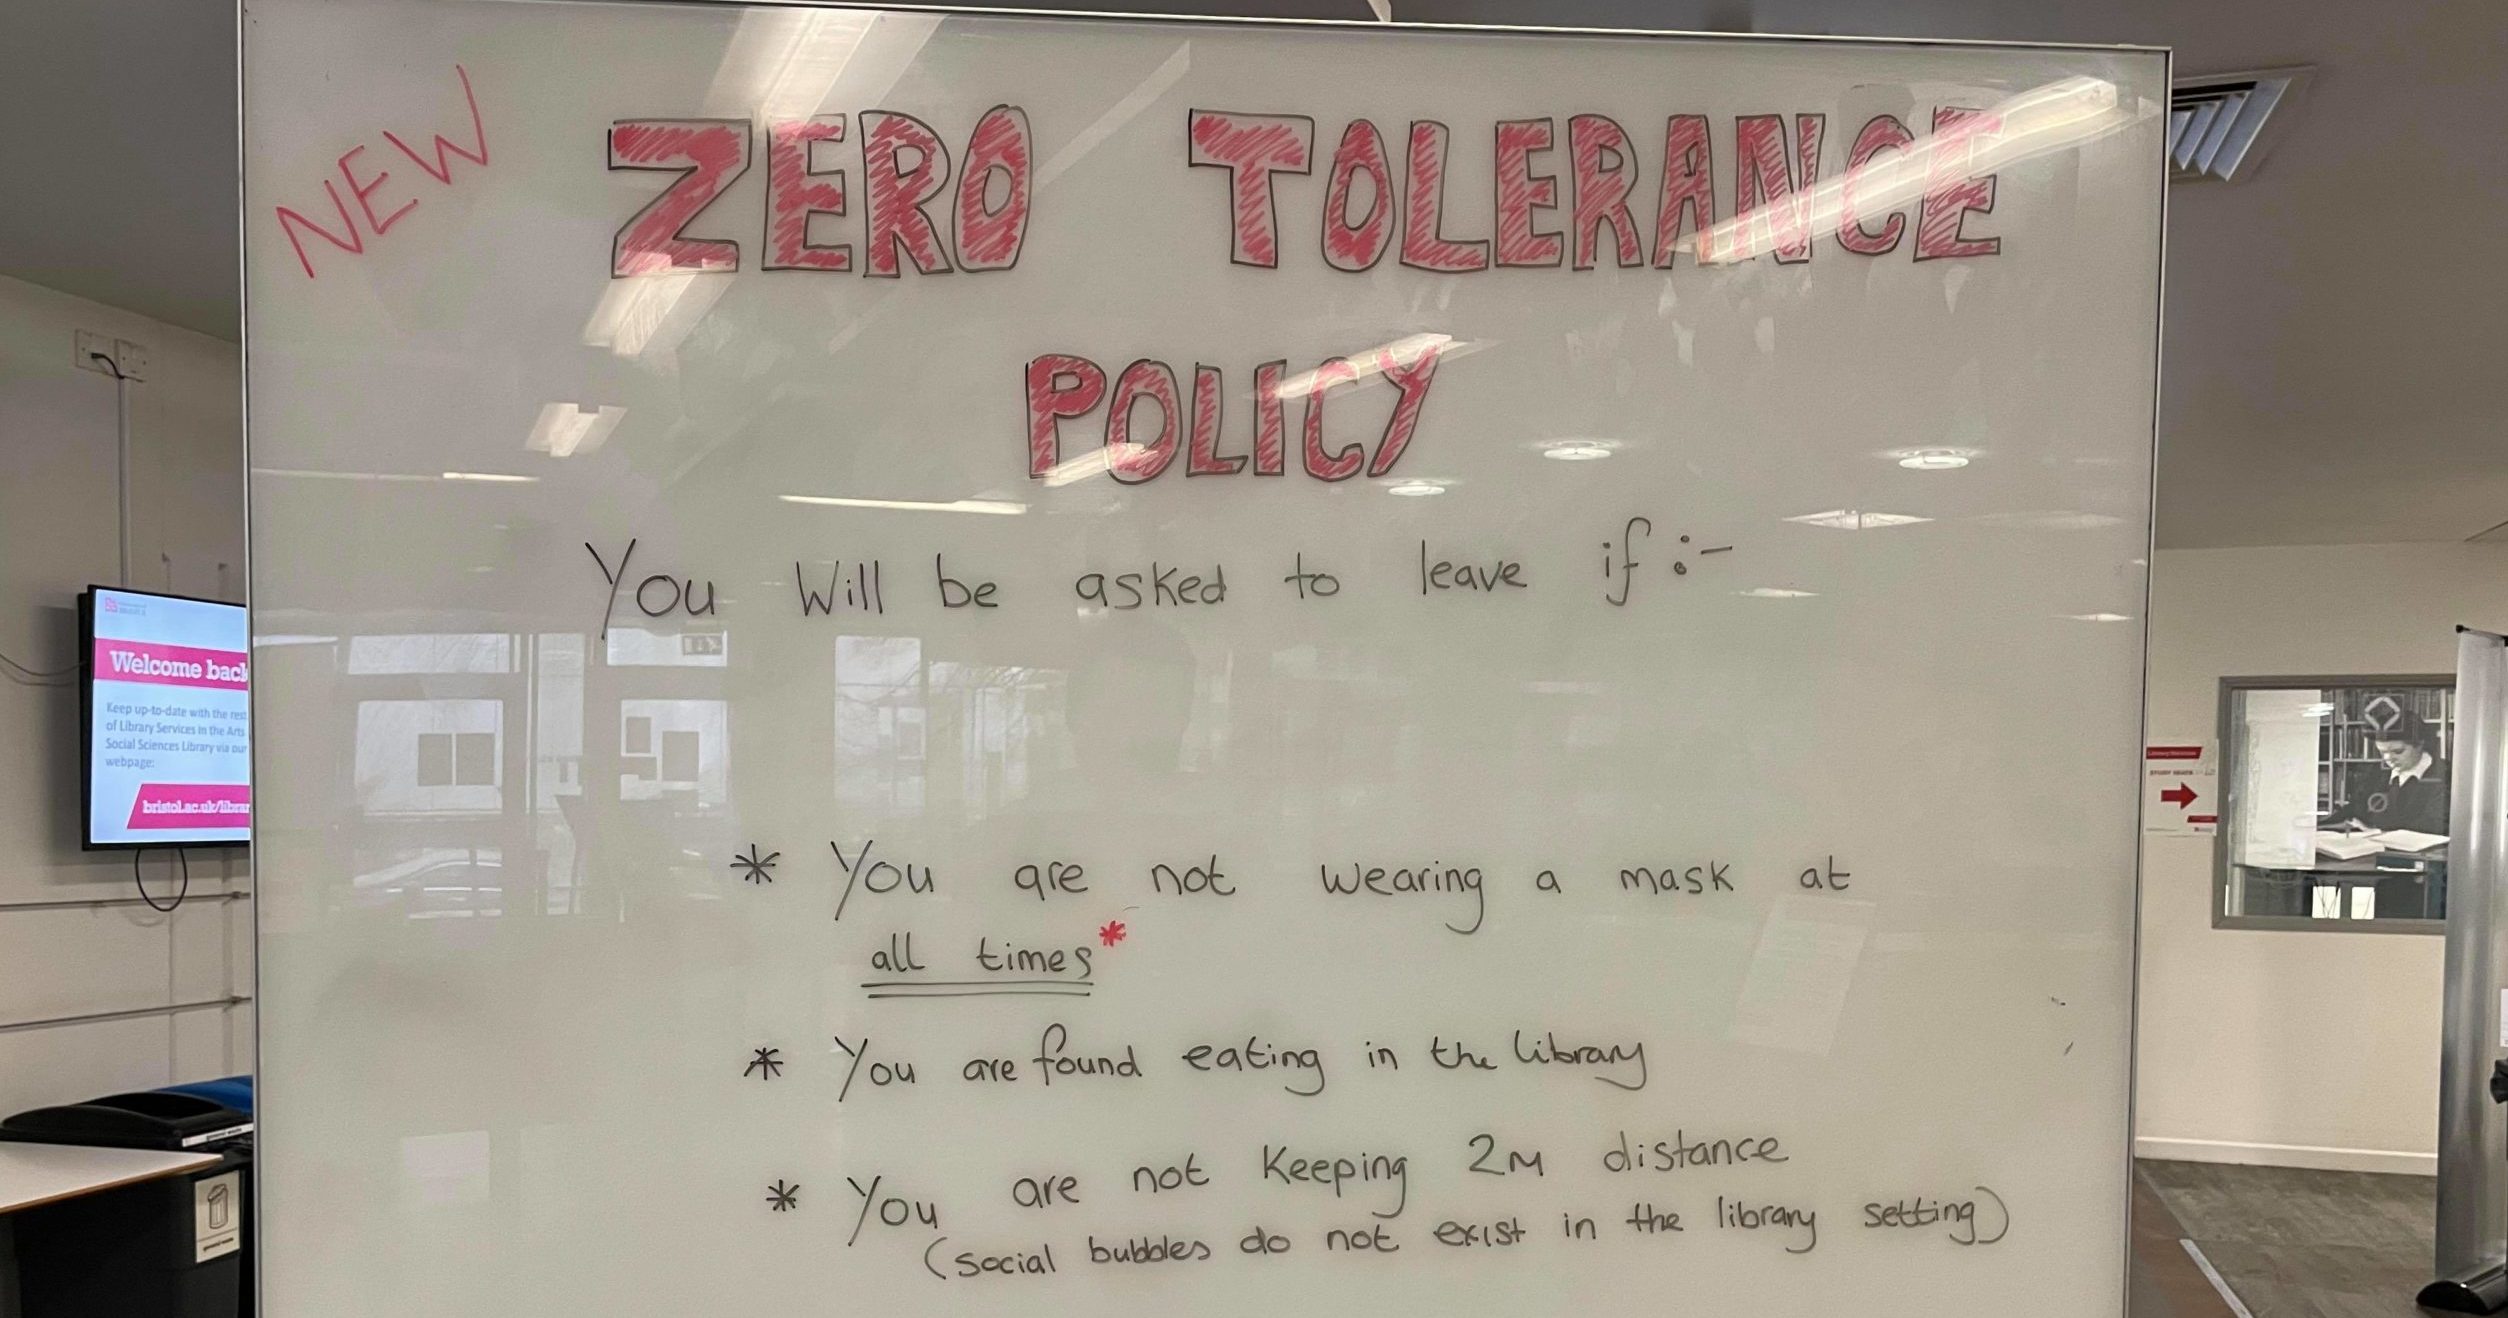 NEW
ZERO TOLERANCE
POLICY
You will be asked to leave if :-
* You are not wearing a mask at
all times*
* You are found eating in the library
* You are not keeping 2m distance
(social bubbles do not exist in the library setting)
Welcome back
Keep up-to-date with the rest
of Library Services in the Arts
Social Sciences Library via our
webpage:
bristol.ac.uk/librar
general waste
STUDY SEATS